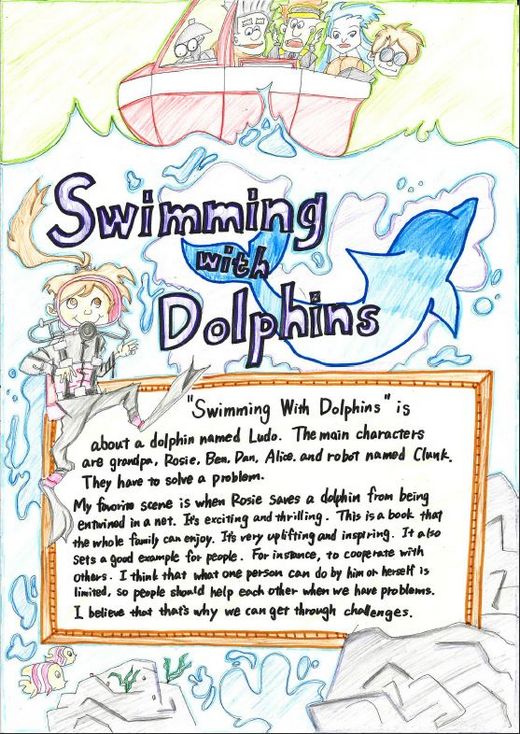 Swimming
with
Dolphins
"Swimming With Dolphins" is
about a dolphin named Ludo. The main characters
are grandpa, Rosie, Ben, Dan, Alice, and robot named Clunk.
They have to solve a problem.
My favorite scene is when Rosie saves a dolphin from being
entwined in a net. It's exciting and thrilling. This is a book that
the whole family can enjoy. It's very uplifting and inspiring. It also
sets a good example for people. For instance, to cooperate with
others. I think that what one person can do by him or herself is
limited, so people should help each other when we have problems.
I believe that that's why we can get through challenges.